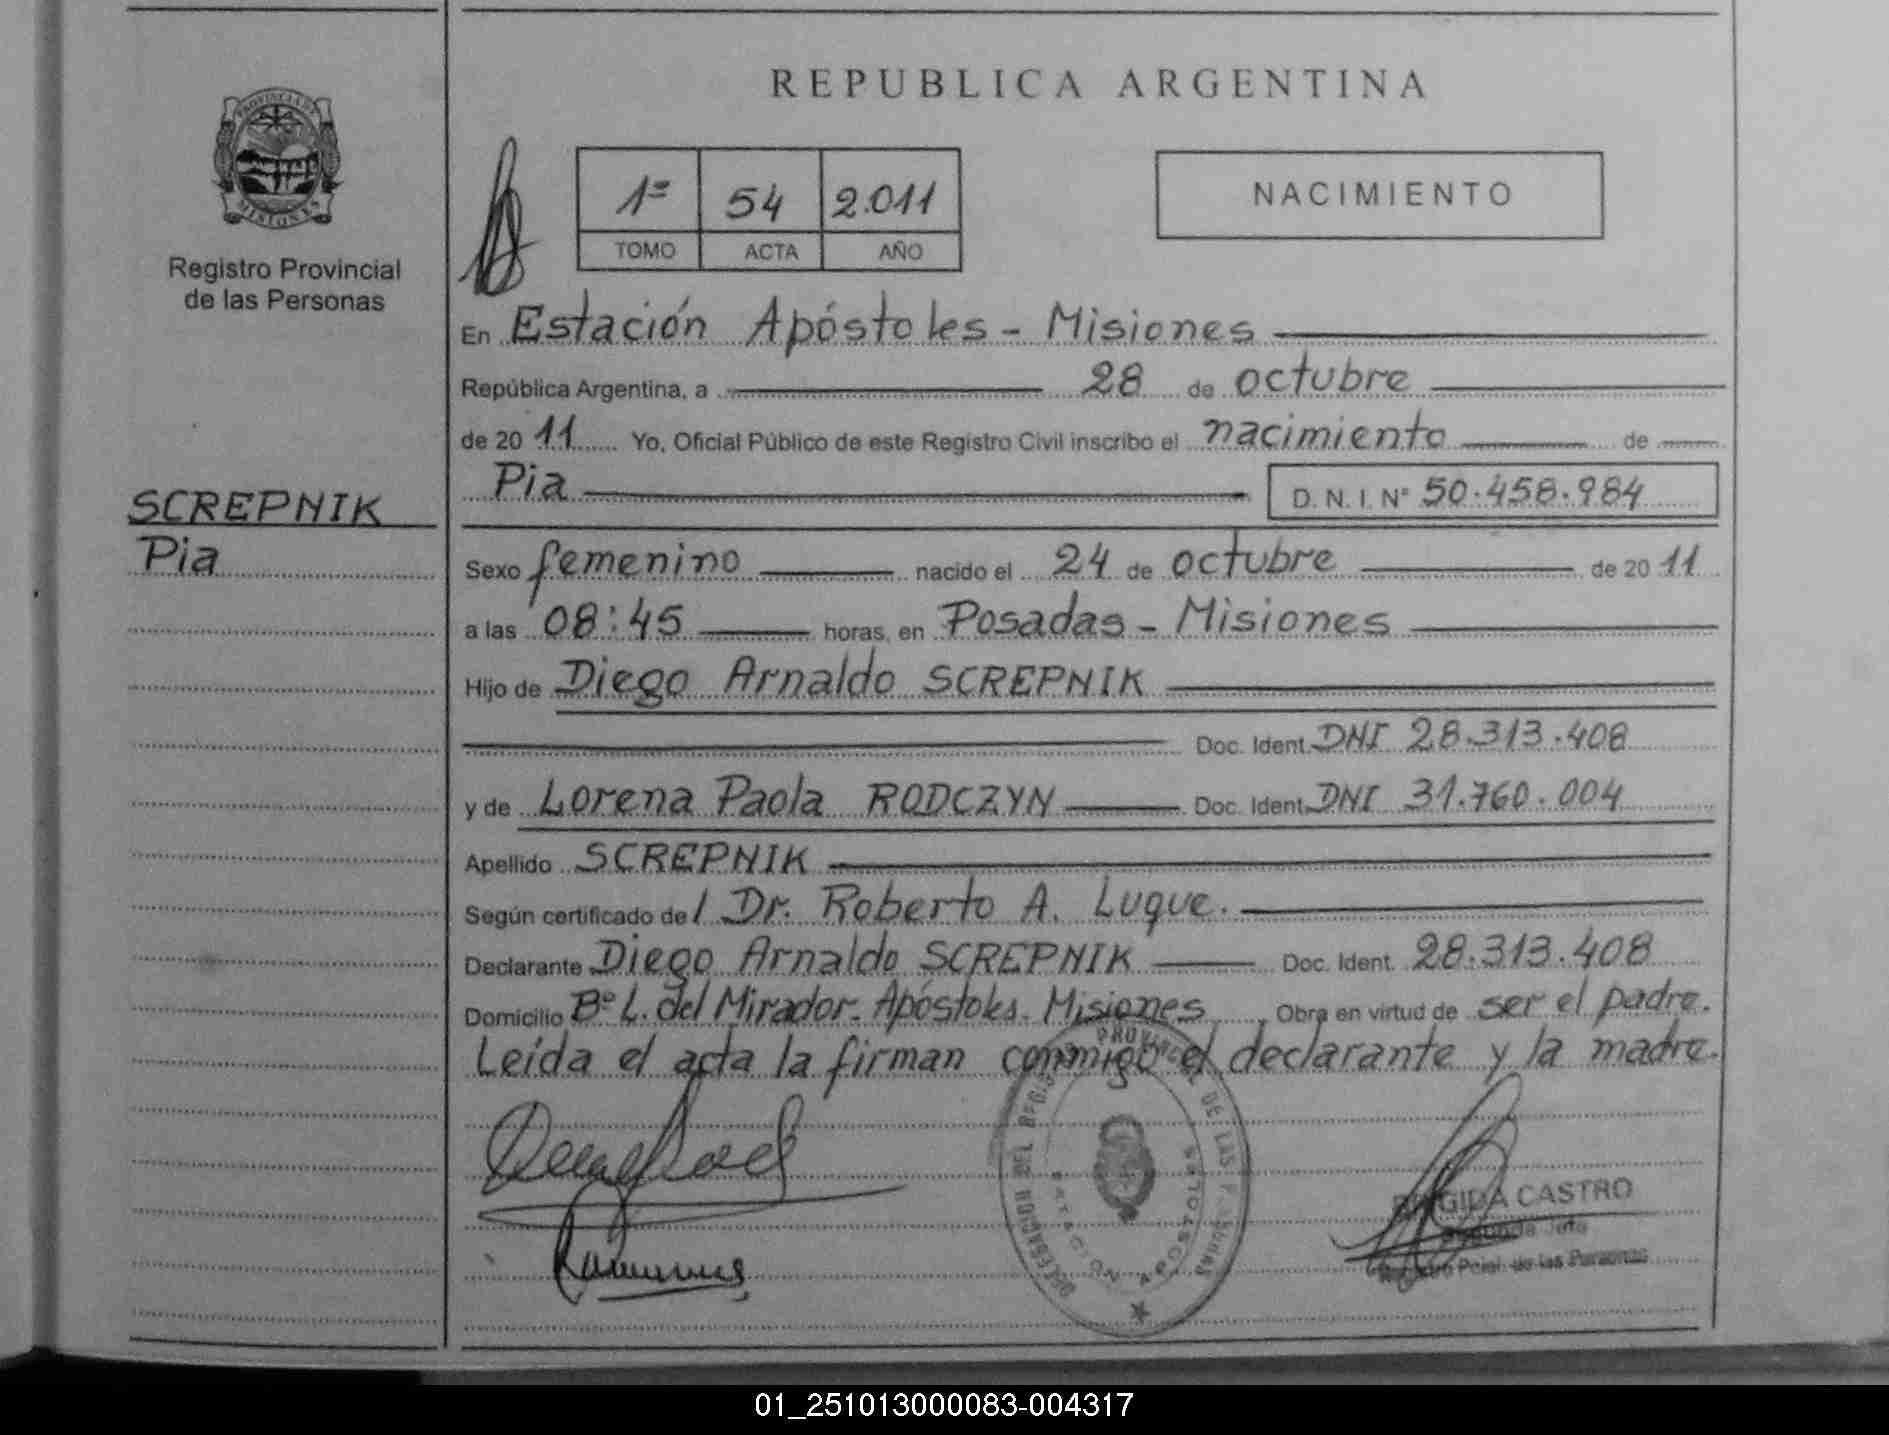 REPUBLICA ARGENTINA
PROVINCIA DE
MISIONES
Registro Provincial
de las Personas
1º 54 2.011
TOMO ACTA AÑO
NACIMIENTO
En Estación Apóstoles - Misiones
República Argentina, a 28 de octubre
de 2011 Yo, Oficial Público de este Registro Civil inscribo el nacimiento de
Pia D. N. I. Nº 50.458.984
SCREPNIK
Pia
Sexo femenino nacido el 24 de octubre de 2011
a las 08:45 horas, en Posadas - Misiones
Hijo de Diego Arnaldo SCREPNIK
Doc. Ident. DNI 28.313.408
y de Lorena Paola RODCZYN Doc. Ident. DNI 31.760.004
Apellido SCREPNIK
Según certificado del Dr. Roberto A. Luque.
Declarante Diego Arnaldo SCREPNIK Doc. Ident. 28.313.408
Domicilio Bº L. del Mirador. Apóstoles. Misiones Obra en virtud de ser el padre.
Leída el acta la firman conmigo el declarante y la madre.
DELEGACION DEL REGISTRO PROVINCIAL DE LAS PERSONAS
ESTACION APOSTOLES
BRIGIDA CASTRO
Registro Pcial. de las Personas
01_251013000083-004317